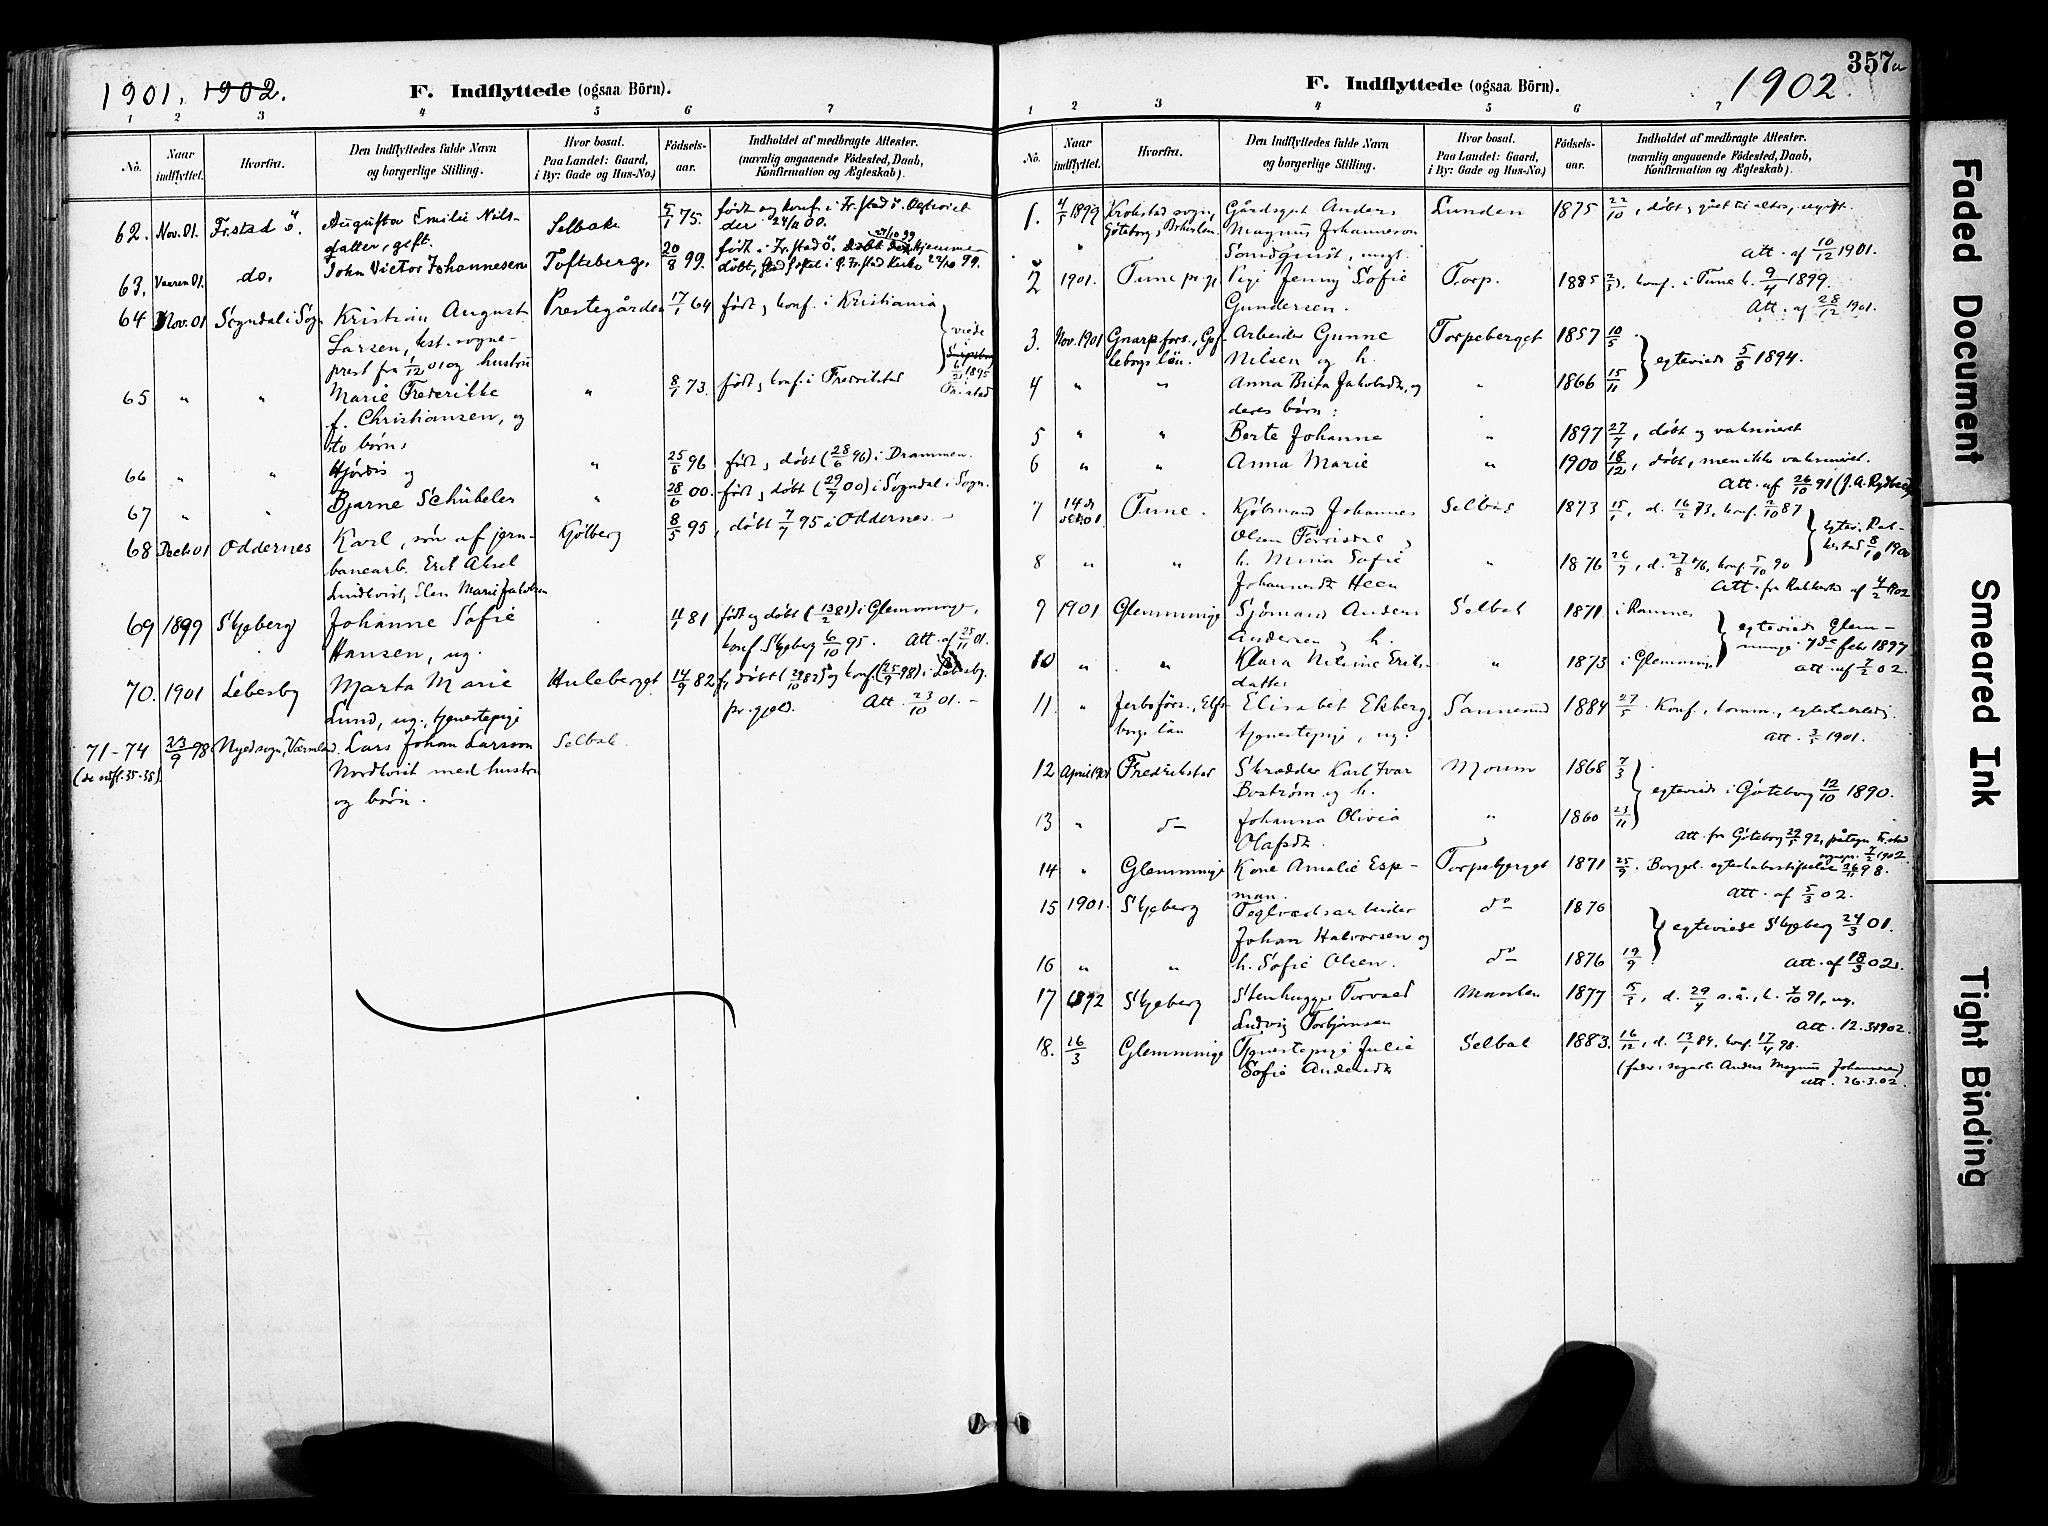 1901, 1902.
F. Indflyttede (ogsaa Börn).
1 2 3 4 5 6 7
No. Naar indflyttet. Hvorfra. Den Indflyttedes fulde Navn og borgerlige Stilling. Hvor bosat. Paa Landet: Gaard, i By: Gade og Hus-No.) Födsels-aar. Indholdet af medbragte Attester. (navnlig angaaende Födested, Daab, Konfirmation og Ægteskab).
62. Nov. 01. Fr.stad ö. Augusta Emilie Nils- Selbak 5/1 75. født og konf. i Fr.stad ö.
datter, gift. der 24/11 00.
63. Vaaren 01. do. John Victor Johannesen Tofteberg. 20/8 99. født i Fr.stad ö. hjemme-
døbt, 27/10 99.
64 Nov. 01 Sogndal i Sogn Kristian August Prestegården 17/1 64 født, konf. i Kristiania
Larsen, kst. sogne-
prest fra 1/12 01 og hustru
65 " " Marie Frederikke " 8/7 73. født, konf. i Fredrikstad
viede 1895 Fr.stad
f. Christiansen, og
to børn:
66 " " Hjørdis og " 25/5 96 født, døbt (28/6 96) i Drammen.
67 " " Bjarne Schübeler " 28/6 00. født, døbt (29/7 00) i Sogndal i Sogn.
68 Decb. 01 Oddernes Karl, søn af jern- Kjølberg 8/5 95, døbt 7/7 95 i Oddernes. -
banearb. Erik Aksel
Lindkvist, Elen Marie Jakobsen
69 1899 Skjeberg Johanne Sofie 11/1 81 født og døbt (13/2 81) i Glemminge,
Hansen, ug. konf. Skjeberg 6/10 95. Att. af 25/11 01.
70. 1901 Lebesby Marta Marie Huleberget 14/9 82 f, døbt (29/10 82) og konf. (25/9 98) i Lebesby
Lund, ug., tjenestepige pr. gjeld. Att. 23/10 01. -
71-74 23/9 98 Nyed sogn, Værmland. Lars Johan Larsson Selbak
(se udfl. 35-38) Nordkvist med hustru
og børn.
357a
F. Indflyttede (ogsaa Börn).
1902
1 2 3 4 5 6 7
No. Naar indflyttet. Hvorfra. Den Indflyttedes fulde Navn og borgerlige Stilling. Hvor bosat. Paa Landet: Gaard, i By: Gade og Hus-No.) Födsels-aar. Indholdet af medbragte Attester. (navnlig angaaende Födested, Daab, Konfirmation og Ægteskab).
1. 4/5 1899 Krokstad sogn, Gårdsgut Anders Lunden 1875 22/10, døbt, gået til alters, ugift.
Göteborg, Bohuslän. Magnus Johanneson
ugift Att. af 10/12 1901.
2 1901. Tune pr.gj. Pige Jenny Sofie Torp. 1885 2/3, konf. i Tune k. 9/4 1899.
Gundersen. Att. af 28/12 1901.
3. Nov. 1901 Gnarp fors., Gef- Arbeider Gunne Torpeberget 1857 10/5
leborgs län. Nilsen og h. egteviede 5/8 1894.
4 " " Anna Brita Jakobsdtr, og " 1866 15/11
deres børn:
5 " " Berte Johanne " 1897 27/7, døbt og vaksineret
6 " " Anna Marie " 1900 18/12, døbt, men ikke vaksineret.
Att. af 26/10 91 (J. A. Rydberg)
7 14 ds 01 Tune. Kjøbmand Johannes Selbak 1873 15/1, d. 16/2 73, konf. 2/10 87
Olsen og egtev. Rak-
kestad 8/10 1900
8 " " h. Mina Sofie " 1876 26/7, d. 27/8 76, konf. 5/10 90
Johannesdtr Heen Att. fra Rakkestad af 4/2 1902
9 1901 Glemminge Sjømand Anders Selbak 1871 i Ramnes
Andersen og h. egteviede Glem-
minge 7de febr 1897
10 " " Klara Nilsine Eriks- " 1873 i Glemminge
datter att. af 7/2 02.
11. " Jerbo förs., Elfs- Elisabet Ekberg, Sannesund 1884 27/5. Konf., komm., egteskabsledig.
borgs län tjenestepige, ug. Att. 3/5 1901.
12 April 1901 Fredrikstad Skrædder Karl Ivar Moum 1868 7/3
Boström og h. egteviede i Göteborg 12/10 1890.
13 " do Johanna Olivia " 1860 23/11
Olafsdtr. Att. fra Göteborg 29/5 92, påtegn. Fr.stad
sognepr. 7/2 1902.
14 " Glemminge Kone Amalie Esp- Torpeberget 1871 25/9. Borgerl. egteskabsstiftelse 26/11 98.
man. Att. af 5/3 02.
15 1901. Skjeberg Teglverksarbeider do 1876
Johan Halvorsen og egteviede Skjeberg 24/3 01.
16 " " h. Sofie Olsen. do 1876 19/9 Att. af 18/3 02.
17 1892 Skjeberg Stenhugger Torvald 1877 15/3, d. 29/4 s.å., k. 4/10 91, ug.
Ludvig Torbjørnsen Att. 12.3 1902.
18. 26/3 Glemminge Tjenestepige Julie Selbak 1883. 16/12, d. 13/1 84, konf. 17/4 98.
Sofie Andersdtr (fader: sagarb. Anders Magnus Johannesen)
att. 26.3.02.
Faded Document
Smeared Ink
Tight Binding